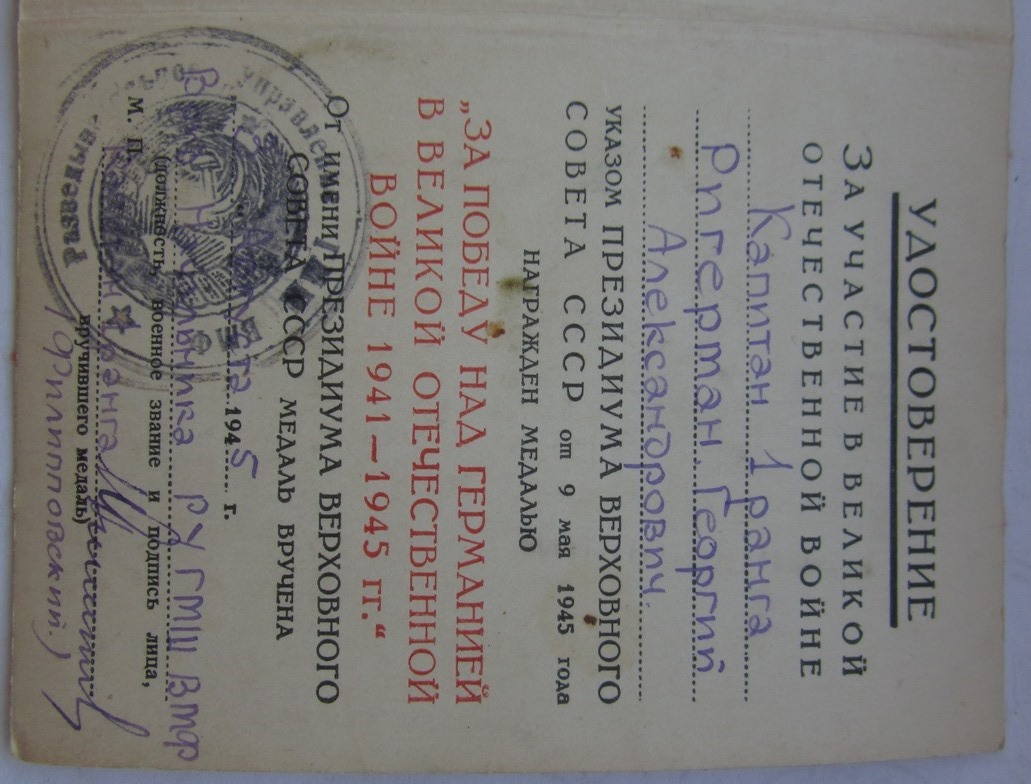 УДОСТОВЕРЕНИЕ
ЗА УЧАСТИЕ В ВЕЛИКОЙ
ОТЕЧЕСТВЕННОЙ ВОЙНЕ
Капитан 1 ранга
Рпгерман. Георгий
Александрович.
УКАЗОМ ПРЕЗИДИУМА ВЕРХОВНОГО
СОВЕТА СССР от 9 мая 1945 года
НАГРАЖДЕН МЕДАЛЬЮ
„ЗА ПОБЕДУ НАД ГЕРМАНИЕЙ
В ВЕЛИКОЙ ОТЕЧЕСТВЕННОЙ
ВОЙНЕ 1941—1945 гг.“
От ИМЕНИ ПРЕЗИДИУМА ВЕРХОВНОГО
СОВЕТА СССР МЕДАЛЬ ВРУЧЕНА
1945 г.
РУ ГМШ ВМФ
М. П. (должность, военное звание и подпись лица,
ранга
вручившего медаль)
(Филипповский.)